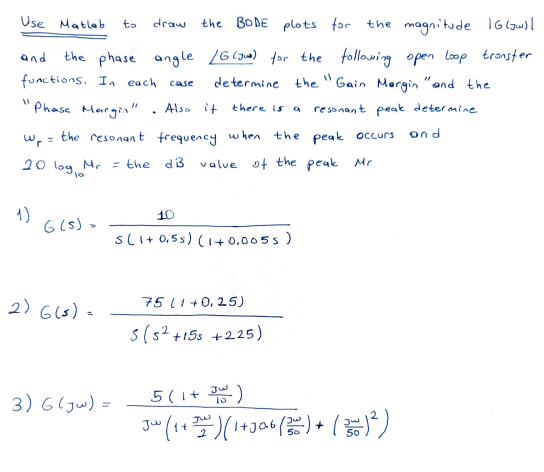 Use Matlab to draw the BODE plots for the magnitude |G(jω)|
and the phase angle ∠G(jω) for the following open loop transfer
functions. In each case determine the "Gain Margin" and the
"Phase Margin". Also if there is a resonant peak determine
ωr = the resonant frequency when the peak occurs and
20 log10 Mr = the dB value of the peak Mr
1) G(s) = 10 / s(1+0,5s)(1+0.005s)
2) G(s) = 75(1+0,2s) / s(s²+15s+225)
3) G(jω) = 5(1+ jω/10) / jω(1+ jω/2)(1+j0.6(jω/50)+(jω/50)²)